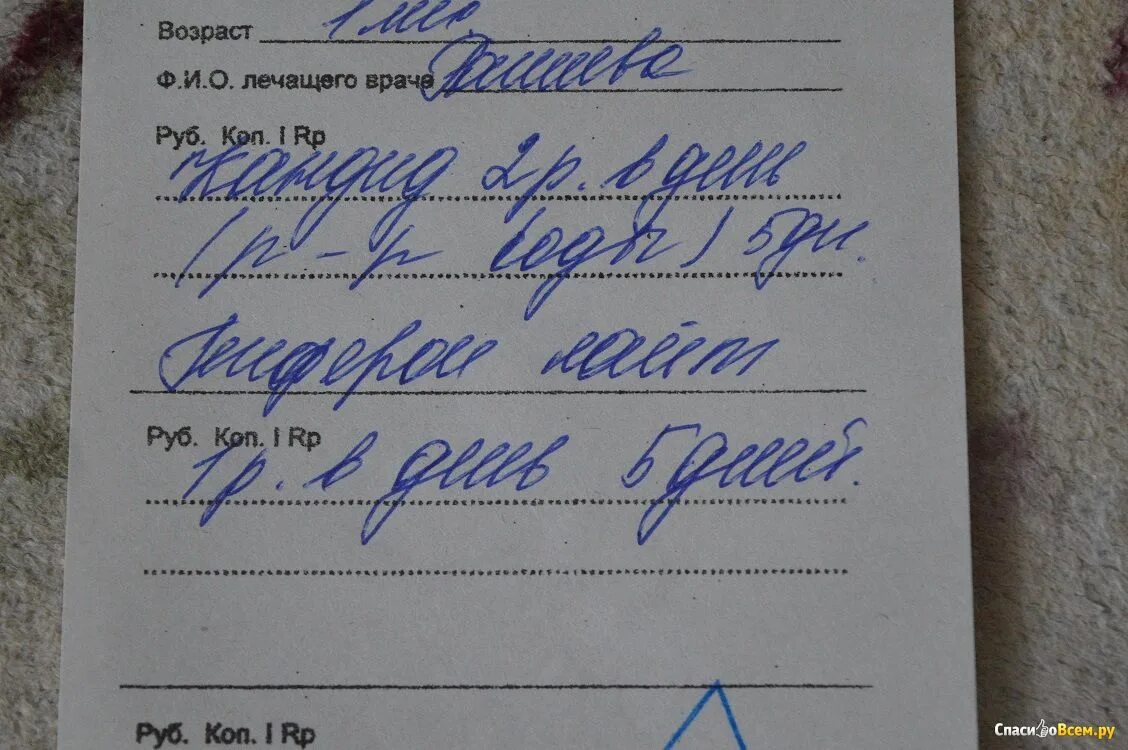 Возраст 1 мес.
Ф.И.О. лечащего враче
Руб. Коп. I Rp
Кандид 2 р. в день
(р-р соды) 5 дн.
Генферон лайт
Руб. Коп. I Rp
1 р. в день 5 дней.
Руб. Коп. I Rp
СпасибоВсем.ру